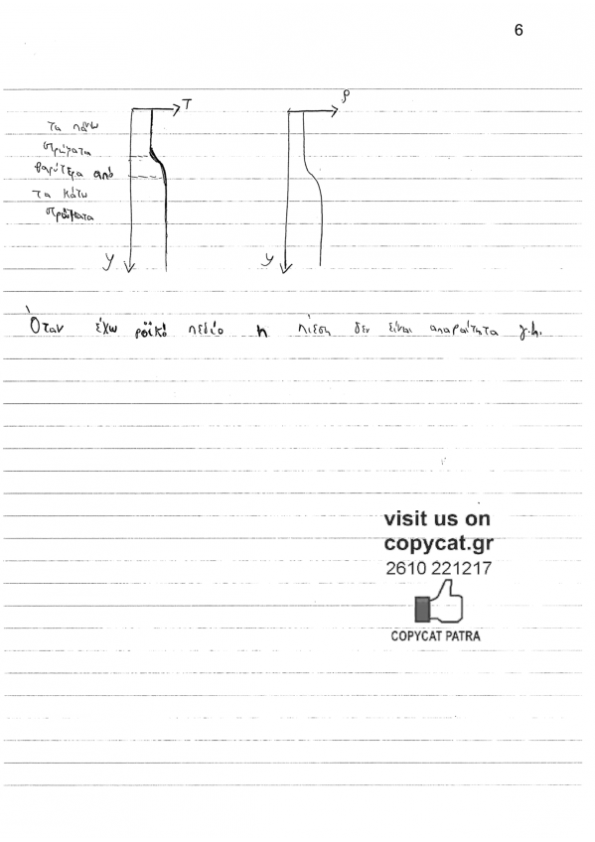 6
T
ρ
τα πάνω
στρώματα
βαρύτερα από
τα κάτω
στρώματα
y
y
Όταν έχω ροϊκό πεδίο η πίεση δεν είναι απαραίτητα γ.h.
visit us on
copycat.gr
2610 221217
COPYCAT PATRA